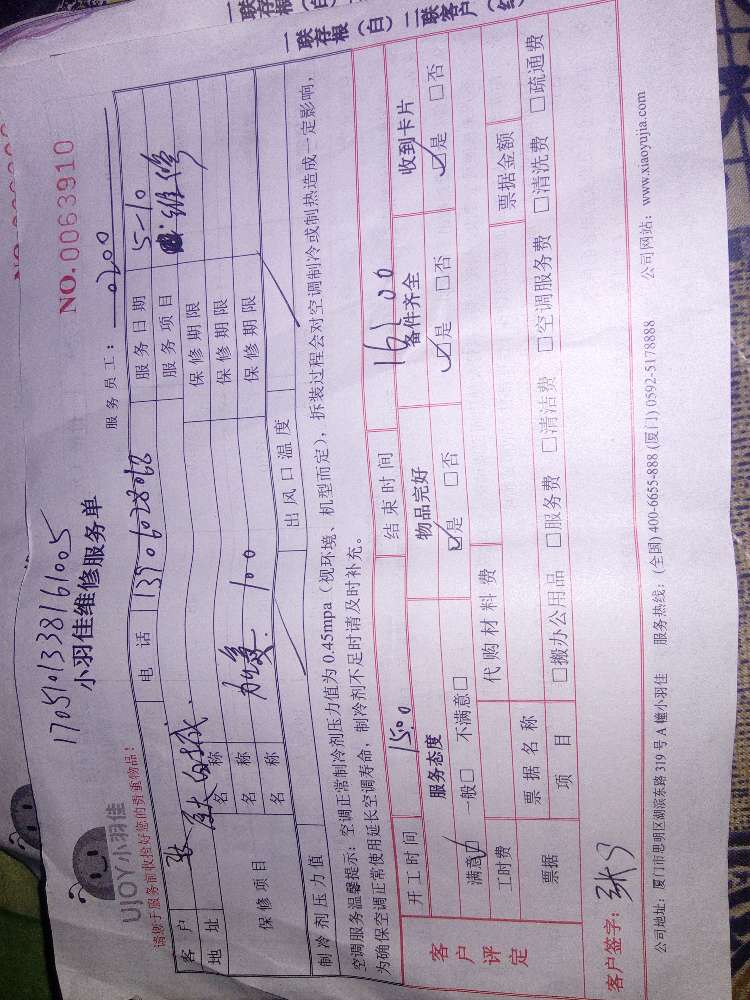 一联存根（白） 二联客户（红
NO.0063910
1705101338161005
UJOY小羽佳
小羽佳维修服务单
请您于服务前收捡好您的贵重物品！
服务员工： 0200
客户 张 电话 13906028068 服务日期 5-10
地址 服务项目 维修
保修项目 名称 保修期限
名称 100 保修期限
名称 保修期限
制冷剂压力值 出风口温度
空调服务温馨提示：空调正常制冷剂压力值为0.45mpa（视环境、机型而定），拆装过程会对空调制冷或制热造成一定影响，
为确保空调正常使用延长空调寿命，制冷剂不足时请及时补充。
开工时间 15:00 结束时间 16:00
客户评定 服务态度 物品完好 备件齐全 收到卡片
满意☑ 一般□ 不满意□ ☑是 □否 ☑是 □否 ☑是 □否
工时费 代购材料费 票据金额
票据 票据名称
项目 □搬办公用品 □服务费 □清洁费 □空调服务费 □清洗费 □疏通费
客户签字： 张
公司地址：厦门市思明区湖滨东路319号A幢小羽佳 服务热线：(全国) 400-6655-888 (厦门) 0592-5178888 公司网站：www.xiaoyujia.com